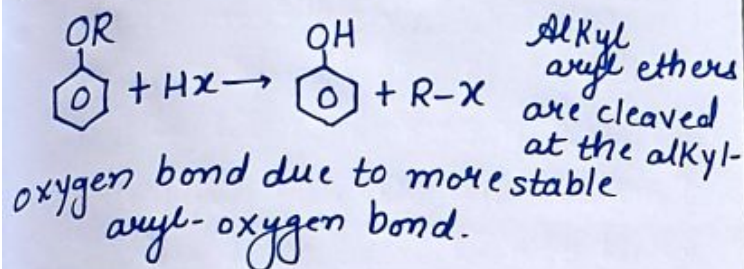 OR OH Alkyl
aryl ethers
+ HX → + R-X are cleaved
at the alkyl-
oxygen bond due to more stable
aryl-oxygen bond.